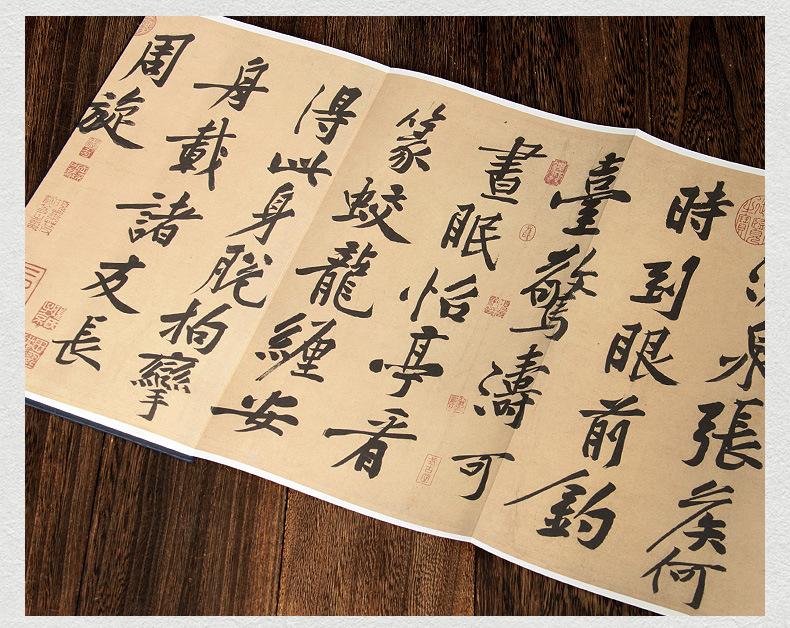 泉張侯何
時到眼前釣
臺驚濤可
晝眠怡亭看
篆蛟龍纏安
得此身脫拘攣
舟載諸友長
周旋